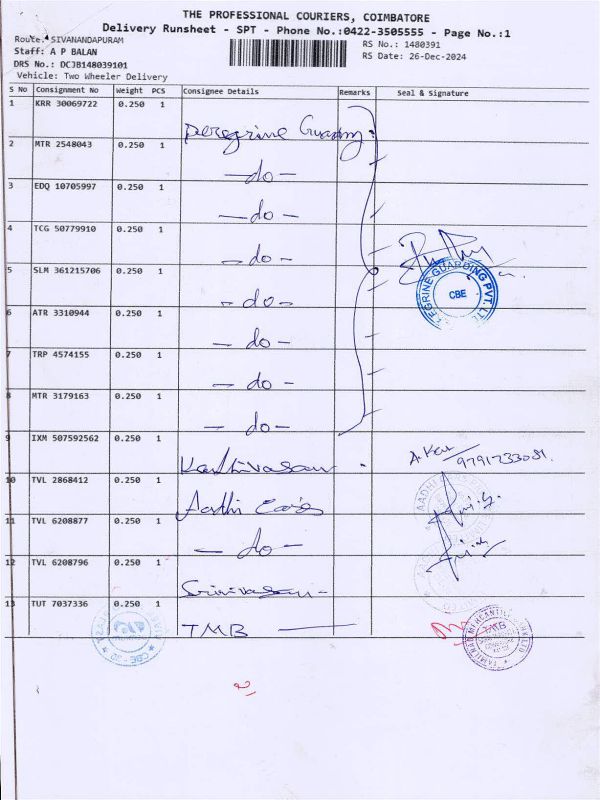 THE PROFESSIONAL COURIERS, COIMBATORE
Delivery Runsheet - SPT - Phone No.:0422-3505555 - Page No.:1
Route: SIVANANDAPURAM
RS No.: 1480391
Staff: A P BALAN
RS Date: 26-Dec-2024
DRS No.: DCJB148039101
Vehicle: Two Wheeler Delivery
S No Consignment No Weight PCS Consignee Details Remarks Seal & Signature
1 KRR 30069722 0.250 1 Peregrine Guarding
2 MTR 2548043 0.250 1 -do-
3 EDQ 10705997 0.250 1 -do-
4 TCG 50779910 0.250 1 -do-
5 SLM 361215706 0.250 1 -do-
6 ATR 3310944 0.250 1 -do-
7 TRP 4574155 0.250 1 -do-
8 MTR 3179163 0.250 1 -do-
PEREGRINE GUARDING PVT. LTD
CBE
9 IXM 507592562 0.250 1 Kadhivasan
9791733081
10 TVL 2868412 0.250 1 Aadhi Cars
11 TVL 6208877 0.250 1 -do-
12 TVL 6208796 0.250 1 Srinivasan
13 TUT 7037336 0.250 1 TMB
TAMILNAD MERCANTILE BANK LTD
TMB